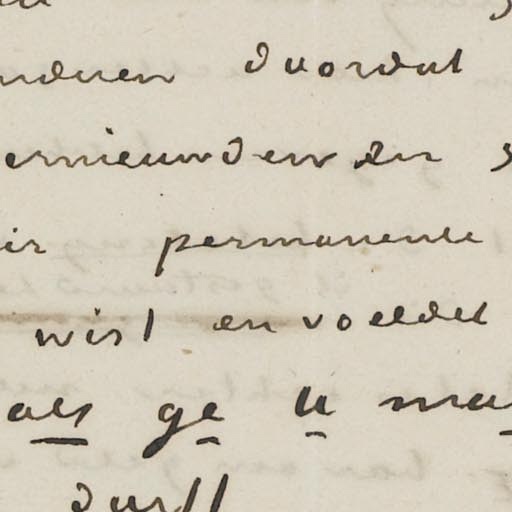 nderen voordat
ernieuwden en
ir permanente
wist en voeldet
als ge u ma
durft